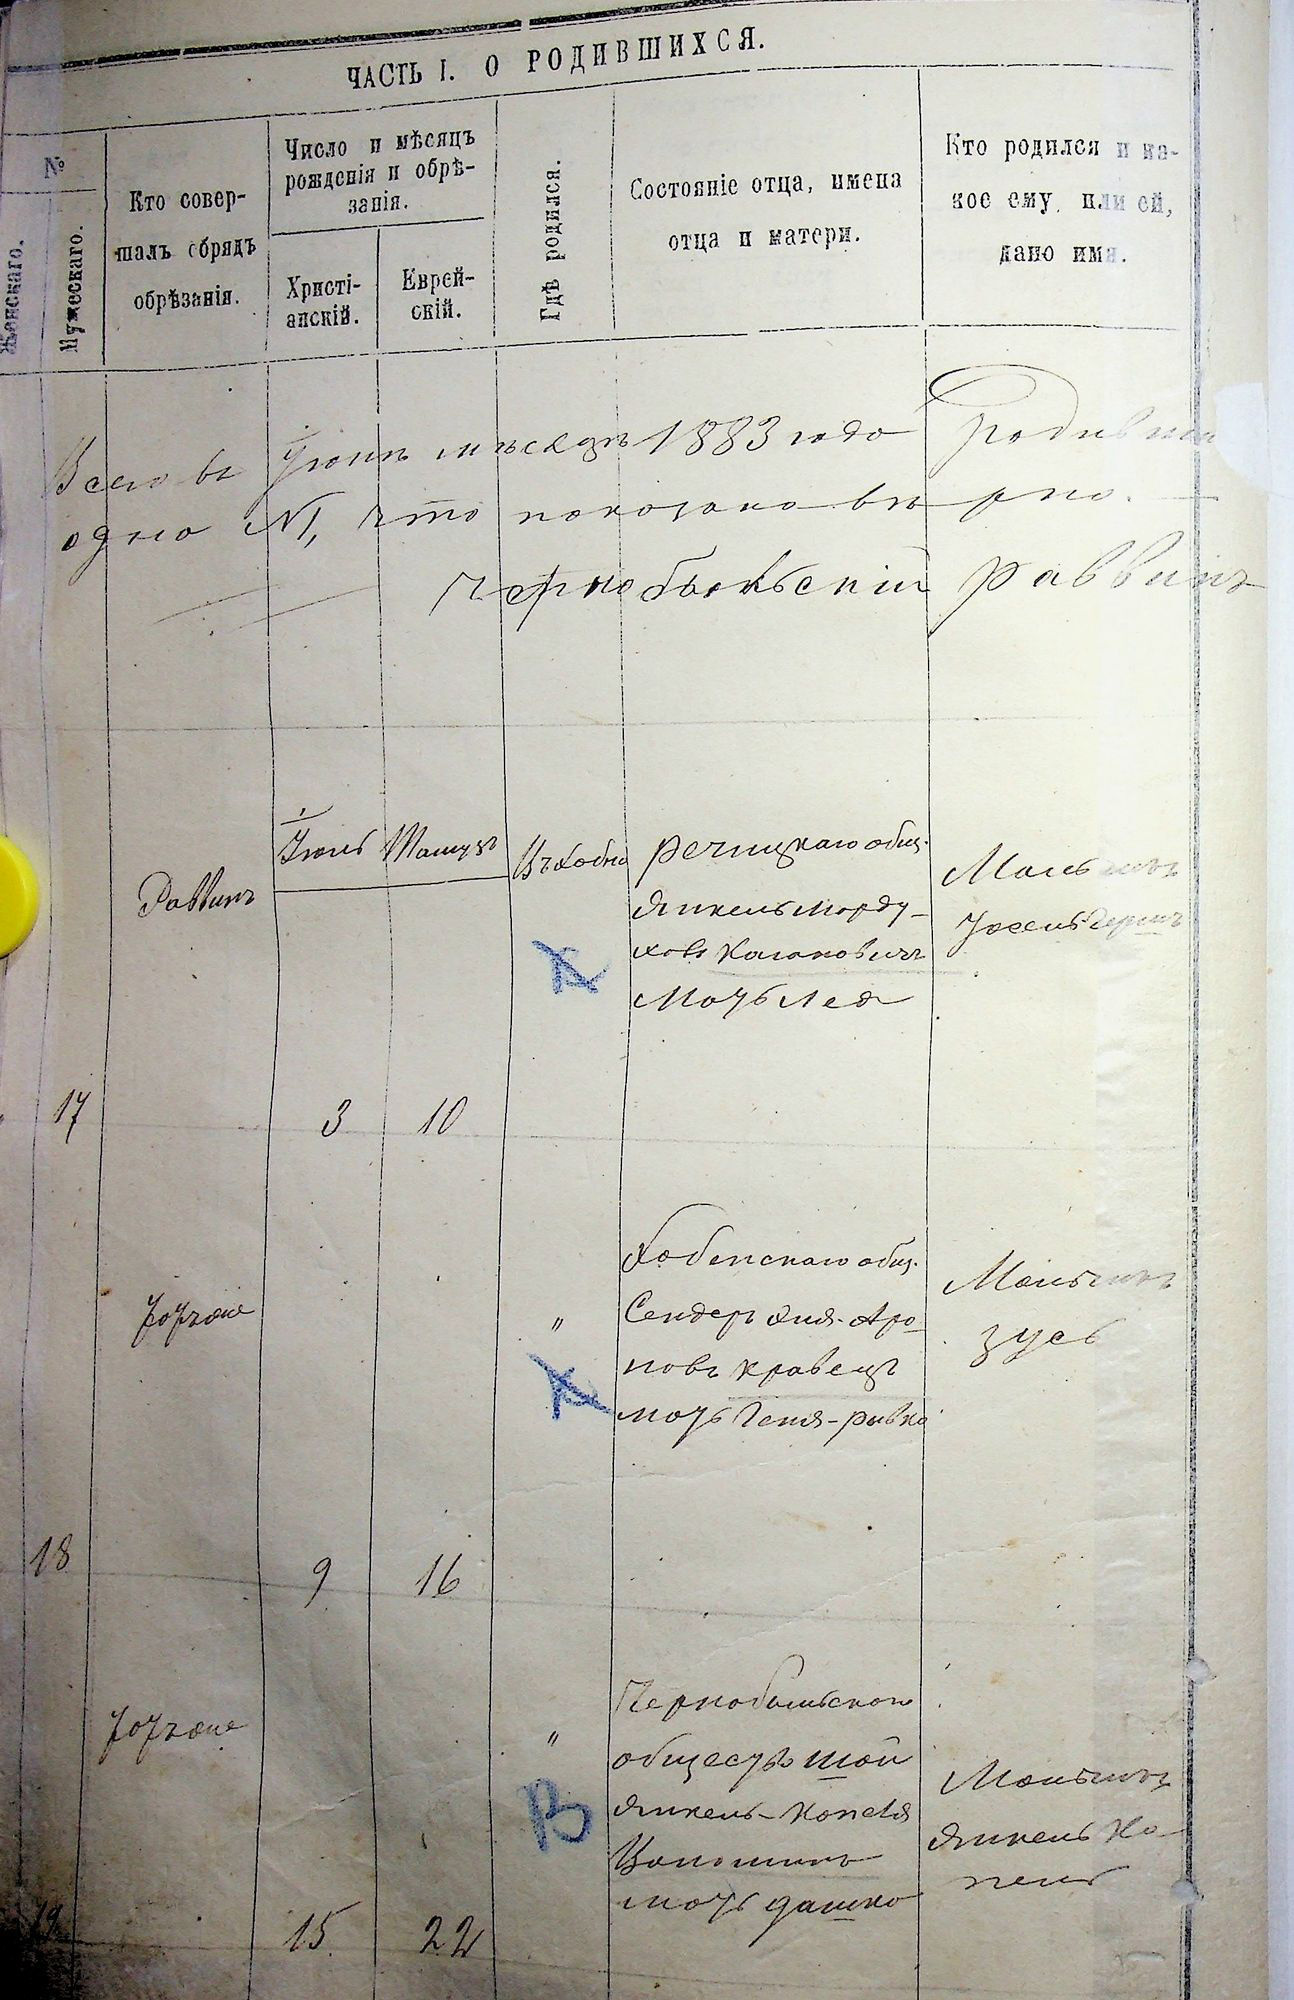 ЧАСТЬ I. О РОДИВШИХСЯ.
№
Женскаго.
Мужескаго.
Кто совер-
шалъ обрядъ
обрѣзанія.
Число и мѣсяцъ
рожденія и обрѣ-
занія.
Христі-
анскій.
Еврей-
скій.
Гдѣ родился.
Состояніе отца, имена
отца и матери.
Кто родился и ка-
кое ему, или ей,
дано имя.
Всего въ Іюнѣ мѣсяцѣ 1883 года
одно №, что показано вѣрно.
Чернобыльскій Раввинъ
17
Раввинъ
Іюль
3
Тамузъ
10
Въ Хабно
Речицкаго общ.
Янкель Морду-
ховъ Кагановичъ
Мать Лея
Мальчикъ
18
9
16
"
Хабенскаго общ.
Сендеръ Хия-Аро-
новъ Кравецъ
мать Геня-Ривка
Мальчикъ
Зусь
19
15
22
"
Чернобыльскаго
Янкель-Копель
мать Дашка
Мальчикъ
Янкель Ко-
пель